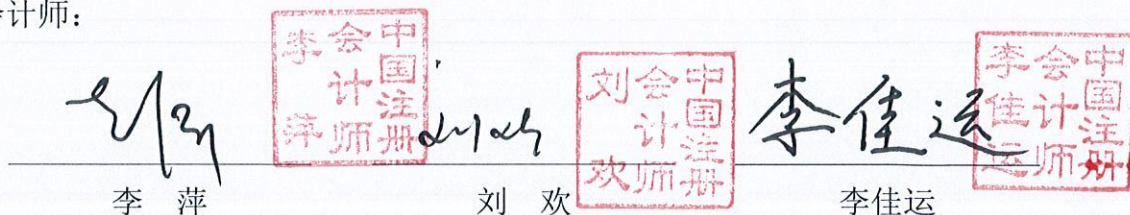 计师：
中国注册
会计师
李萍
中国注册
会计师
刘欢
李佳运
中国注册
会计师
李佳运
李 萍
刘 欢
李佳运